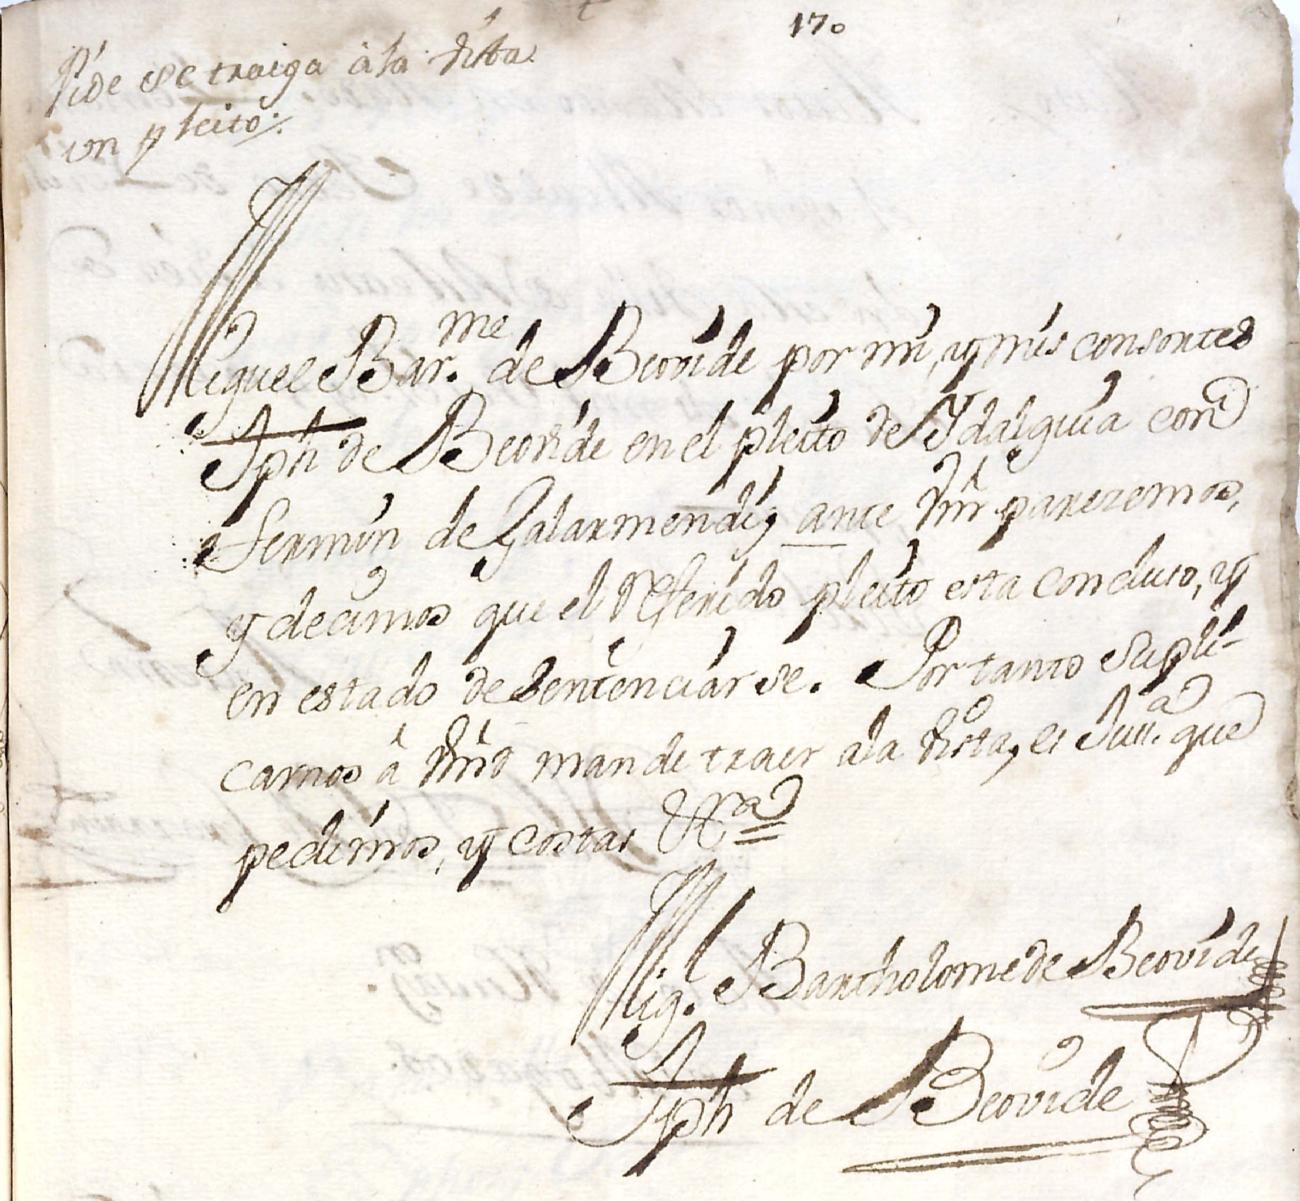 170
Pide se traiga à la vista
un pleito.
Miguel Bar.me de Beovide por mi, y mis consortes
Jph de Beovide en el pleito de Ydalguia con
Fermin de Galarmendi, ante Vm parezemos,
y decimos que el referido pleito esta concluso, y
en estado de sentenciarse. Por tanto supli-
camos â Vmd mande traer ala vista, es Juu.a que
pedimos, y costas &ra
Mig.l Bartholome de Beovide
Jph de Beovide